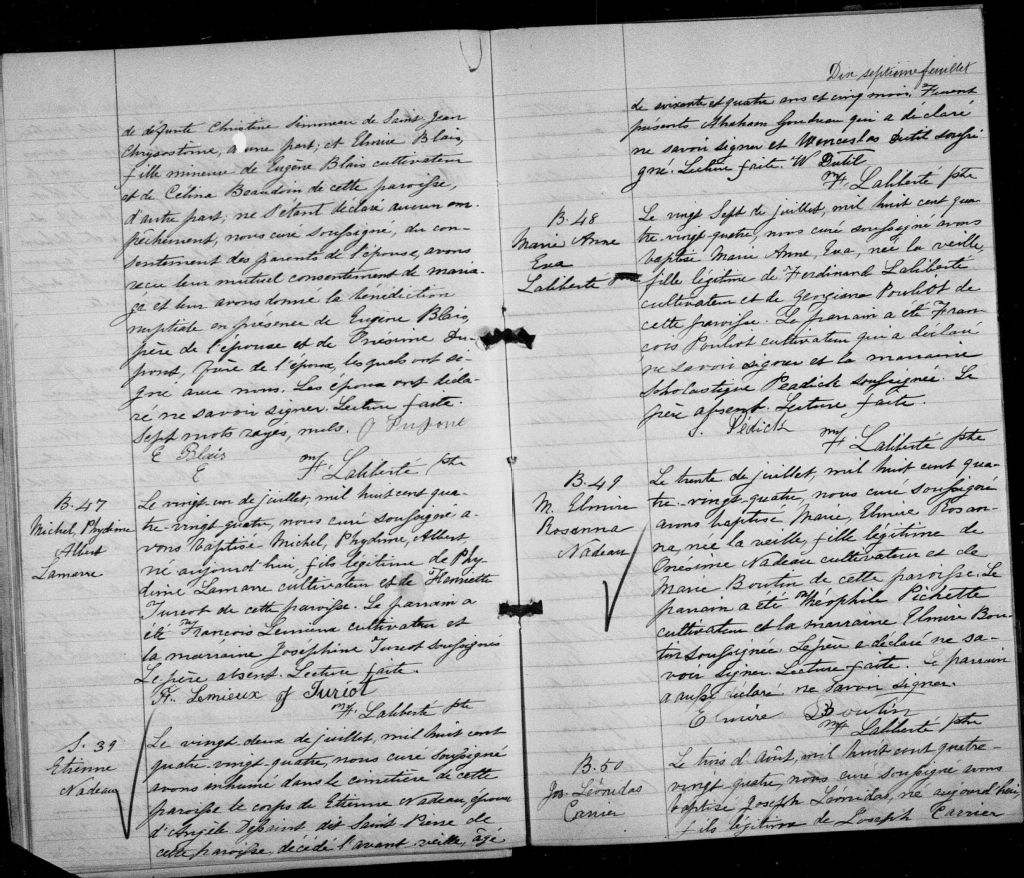 de défunte Christine Simoneau de Saint Jean
Chrysostome, d'une part; et Elmire Blais,
fille mineure de Eugène Blais cultivateur
et de Célina Beaudoin de cette paroisse,
d'autre part; ne s'étant déclaré aucun em-
pêchement, nous curé soussigné, du con-
sentement des parents de l'épouse, avons
reçu leur mutuel consentement de maria-
ge et leur avons donné la bénédiction
nuptiale en présence de Eugène Blais,
père de l'épouse et de Onésime Du-
pont, frère de l'époux, lesquels ont si-
gné avec nous. Les époux ont décla-
ré ne savoir signer. Lecture faite.
Sept mots rayés, nuls. O Dupont
E Blais
E
F. Laliberté ptre
B. 47
Michel, Phydime
Albert
Lamarre
Le vingt un de juillet, mil huit cent qua-
tre-vingt quatre, nous curé soussigné a-
vons baptisé Michel, Phydime, Albert,
né aujourd'hui, fils légitime de Phy-
dime Lamarre cultivateur et de Henriette
Turcot de cette paroisse. Le parrain a
été François Lemieux cultivateur et
la marraine Joséphine Turcot soussignés
Le père absent. Lecture faite.
F. Lemieux J Turcot
F. Laliberté ptre
S. 39
Etienne
Nadeau
Le vingt deux de juillet, mil huit cent
quatre vingt quatre, nous curé soussigné
avons inhumé dans le cimetière de cette
paroisse le corps de Etienne Nadeau, époux
d'Angèle Dessaint dit Saint Pierre de
cette paroisse, décédé l'avant-veille, âgé
Dix septième feuillet
de soixante et quatre ans et cinq mois. Furent
présents Abraham Gondreau qui a déclaré
ne savoir signer et Wenceslas Dutil soussi-
gné. Lecture faite. W Dutil
F. Laliberté ptre
B. 48
Marie Anne
Eva
Laliberté
Le vingt Sept de juillet, mil huit cent qua-
tre-vingt quatre, nous curé soussigné avons
baptisé Marie Anne, Eva, née la veille,
fille légitime de Ferdinand Laliberté
cultivateur et de Georgiana Pouliot de
cette paroisse. Le parrain a été Fran-
çois Pouliot cultivateur qui a déclaré
ne savoir signer et la marraine
Scholastique Peadick soussignée. Le
père absent. Lecture faite.
S. Pédick
F. Laliberté ptre
B. 49
M. Elmire
Rosanna
Nadeau
Le trente de juillet, mil huit cent qua-
tre-vingt-quatre, nous curé soussigné
avons baptisé Marie, Elmire Rosan-
na, née la veille, fille légitime de
Onésime Nadeau cultivateur et de
Marie Boutin de cette paroisse. Le
parrain a été Théophile Pichette
cultivateur et la marraine Elmire Bou-
tin soussignée. Le père a déclaré ne sa-
voir signer. Lecture faite. Le parrain
a aussi déclaré ne savoir signer.
Elmire Boutin
F. Laliberté ptre
B. 50
Jos. Léonidas
Carrier
Le trois d'Août, mil huit cent quatre-
vingt quatre, nous curé soussigné avons
baptisé Joseph Léonidas, né aujourd'hui,
fils légitime de Joseph Carrier